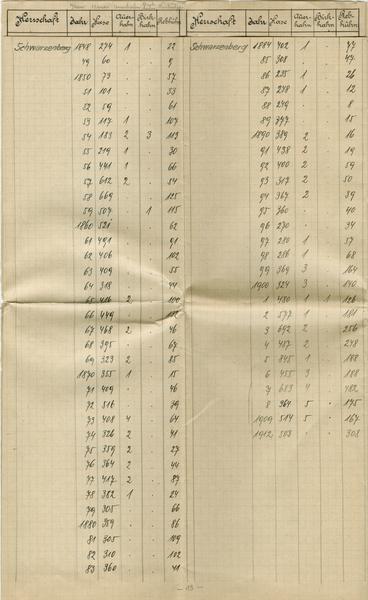 Herrschaft Jahr Hase Auer-hahn Birk-hahn Rebhühn.
Schwarzenberg 1848 274 1 . 22
49 60 . . 9
1850 73 . . 57
51 101 . . 33
52 59 . . 61
53 117 1 . 107
54 183 2 3 113
55 219 1 . 30
56 441 1 . 66
57 612 2 . 54
58 669 . . 125
59 507 . 1 115
1860 521 . . 62
61 491 . . 91
62 406 . . 102
63 409 . . 55
64 318 . . 41
65 416 2 .
66 449 . .
67 468 2 . 46
68 395 . . 67
69 323 2 . 85
1870 355 1 . 15
71 409 . . 46
72 516 . . 39
73 408 4 . 64
74 326 2 . 41
75 359 2 . 27
76 364 2 . 44
77 417 2 . 87
78 382 1 . 24
79 305 . . 66
1880 359 . . 86
81 305 . . 109
82 310 . . 102
83 360 . . 41
Herrschaft Jahr Hase Auer-hahn Birk-hahn Reb-hühn
Schwarzenberg 1884 402 1 . 77
85 308 . . 47
86 235 1 . 26
87 248 1 . 12
88 249 . . 8
89 377 . . 15
1890 389 2 . 16
91 438 2 . 19
92 400 2 . 59
93 317 2 . 50
94 367 2 . 39
95 360 . . 40
96 270 . . 34
97 280 1 . 57
98 286 1 . 68
99 369 3 . 164
1900 324 3 . 140
1 480 1 1 126
2 577 1 . 181
3 692 2 . 256
4 487 2 . 248
5 845 1 . 188
6 455 3 . 108
7 653 4 . 182
8 364 5 . 175
1909 514 5 . 167
1912 503 . . 308
- 13 -